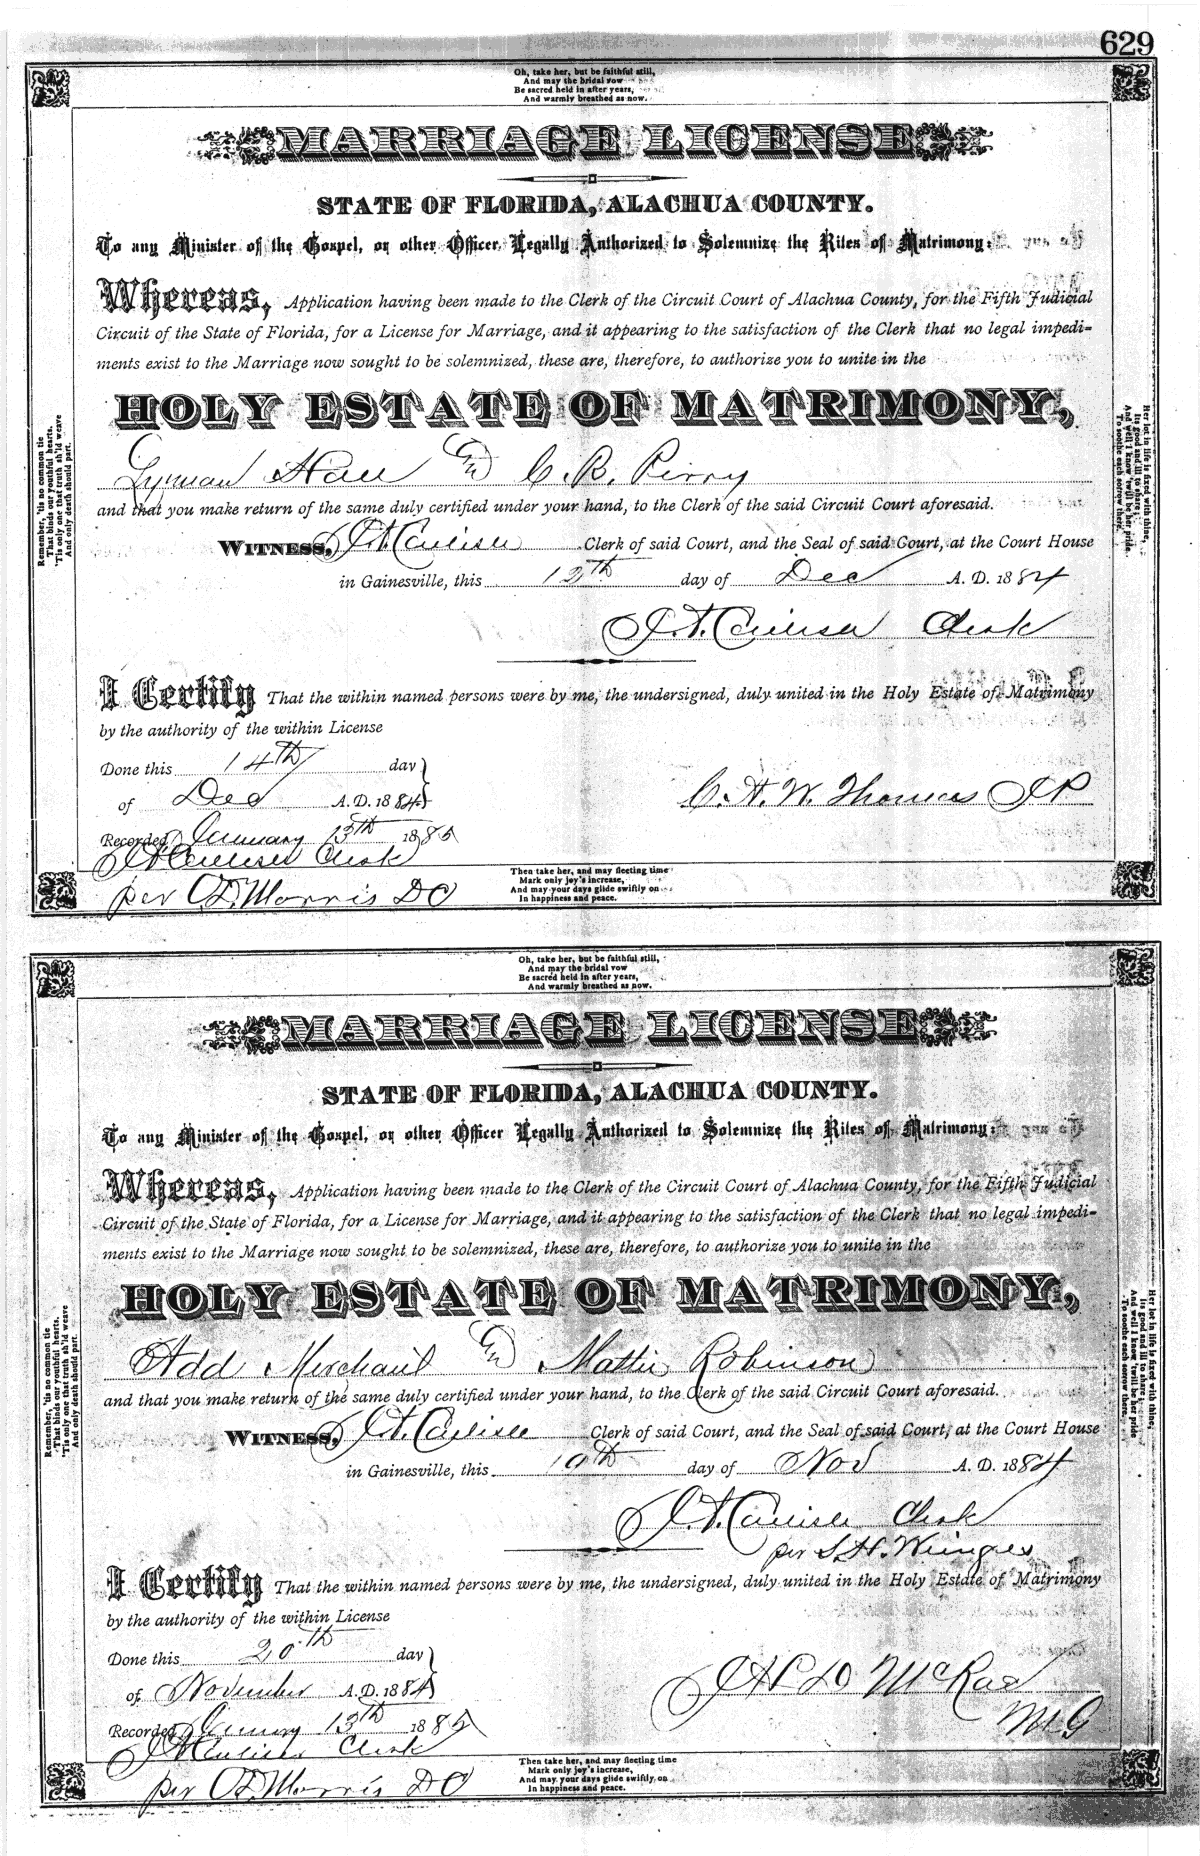 629
Oh, take her, but be faithful still,
And may the bridal vow
Be sacred held in after years,
And warmly breathed as now.
MARRIAGE LICENSE
STATE OF FLORIDA, ALACHUA COUNTY.
To any Minister of the Gospel, or other Officer Legally Authorized to Solemnize the Rites of Matrimony:
WHEREAS, Application having been made to the Clerk of the Circuit Court of Alachua County, for the Fifth Judicial
Circuit of the State of Florida, for a License for Marriage, and it appearing to the satisfaction of the Clerk that no legal impedi-
ments exist to the Marriage now sought to be solemnized, these are, therefore, to authorize you to unite in the
HOLY ESTATE OF MATRIMONY,
Lyman Hall and C. B. Perry
and that you make return of the same duly certified under your hand, to the Clerk of the said Circuit Court aforesaid.
WITNESS, J. A. Carlisle Clerk of said Court, and the Seal of said Court, at the Court House
in Gainesville, this 12th day of Dec A. D. 1884
J. A. Carlisle Clerk
I Certify That the within named persons were by me, the undersigned, duly united in the Holy Estate of Matrimony
by the authority of the within License
Done this 14th day
of Dec A. D. 1884
C. H. W. Thomas J P
Recorded January 13th 1885
J A Carlisle Clerk
per C. D. Morris D C
Remember, 'tis no common tie
That binds our youthful hearts.
'Tis only one that truth sh'ld weave
And only death should part.
Her lot in life is fixed with thine,
Its good and ill to share;
And well I know 'twill be her pride
To soothe each sorrow there.
Then take her, and may fleeting time
Mark only joy's increase,
And may your days glide swiftly on
In happiness and peace.
Oh, take her, but be faithful still,
And may the bridal vow
Be sacred held in after years,
And warmly breathed as now.
MARRIAGE LICENSE
STATE OF FLORIDA, ALACHUA COUNTY.
To any Minister of the Gospel, or other Officer Legally Authorized to Solemnize the Rites of Matrimony:
WHEREAS, Application having been made to the Clerk of the Circuit Court of Alachua County, for the Fifth Judicial
Circuit of the State of Florida, for a License for Marriage, and it appearing to the satisfaction of the Clerk that no legal impedi-
ments exist to the Marriage now sought to be solemnized, these are, therefore, to authorize you to unite in the
HOLY ESTATE OF MATRIMONY,
Add Merchant and Mattie Robinson
and that you make return of the same duly certified under your hand, to the Clerk of the said Circuit Court aforesaid.
WITNESS, J. A. Carlisle Clerk of said Court, and the Seal of said Court, at the Court House
in Gainesville, this 19th day of Nov A. D. 1884
J. A. Carlisle Clerk
per S. H. Wienges
I Certify That the within named persons were by me, the undersigned, duly united in the Holy Estate of Matrimony
by the authority of the within License
Done this 20th day
of November A. D. 1884
McRae
M. G
Recorded January 13th 1885
J A Carlisle Clerk
per C. D. Morris D C
Remember, 'tis no common tie
That binds our youthful hearts.
'Tis only one that truth sh'ld weave
And only death should part.
Her lot in life is fixed with thine,
Its good and ill to share;
And well I know 'twill be her pride
To soothe each sorrow there,
Then take her, and may fleeting time
Mark only joy's increase,
And may your days glide swiftly on
In happiness and peace.